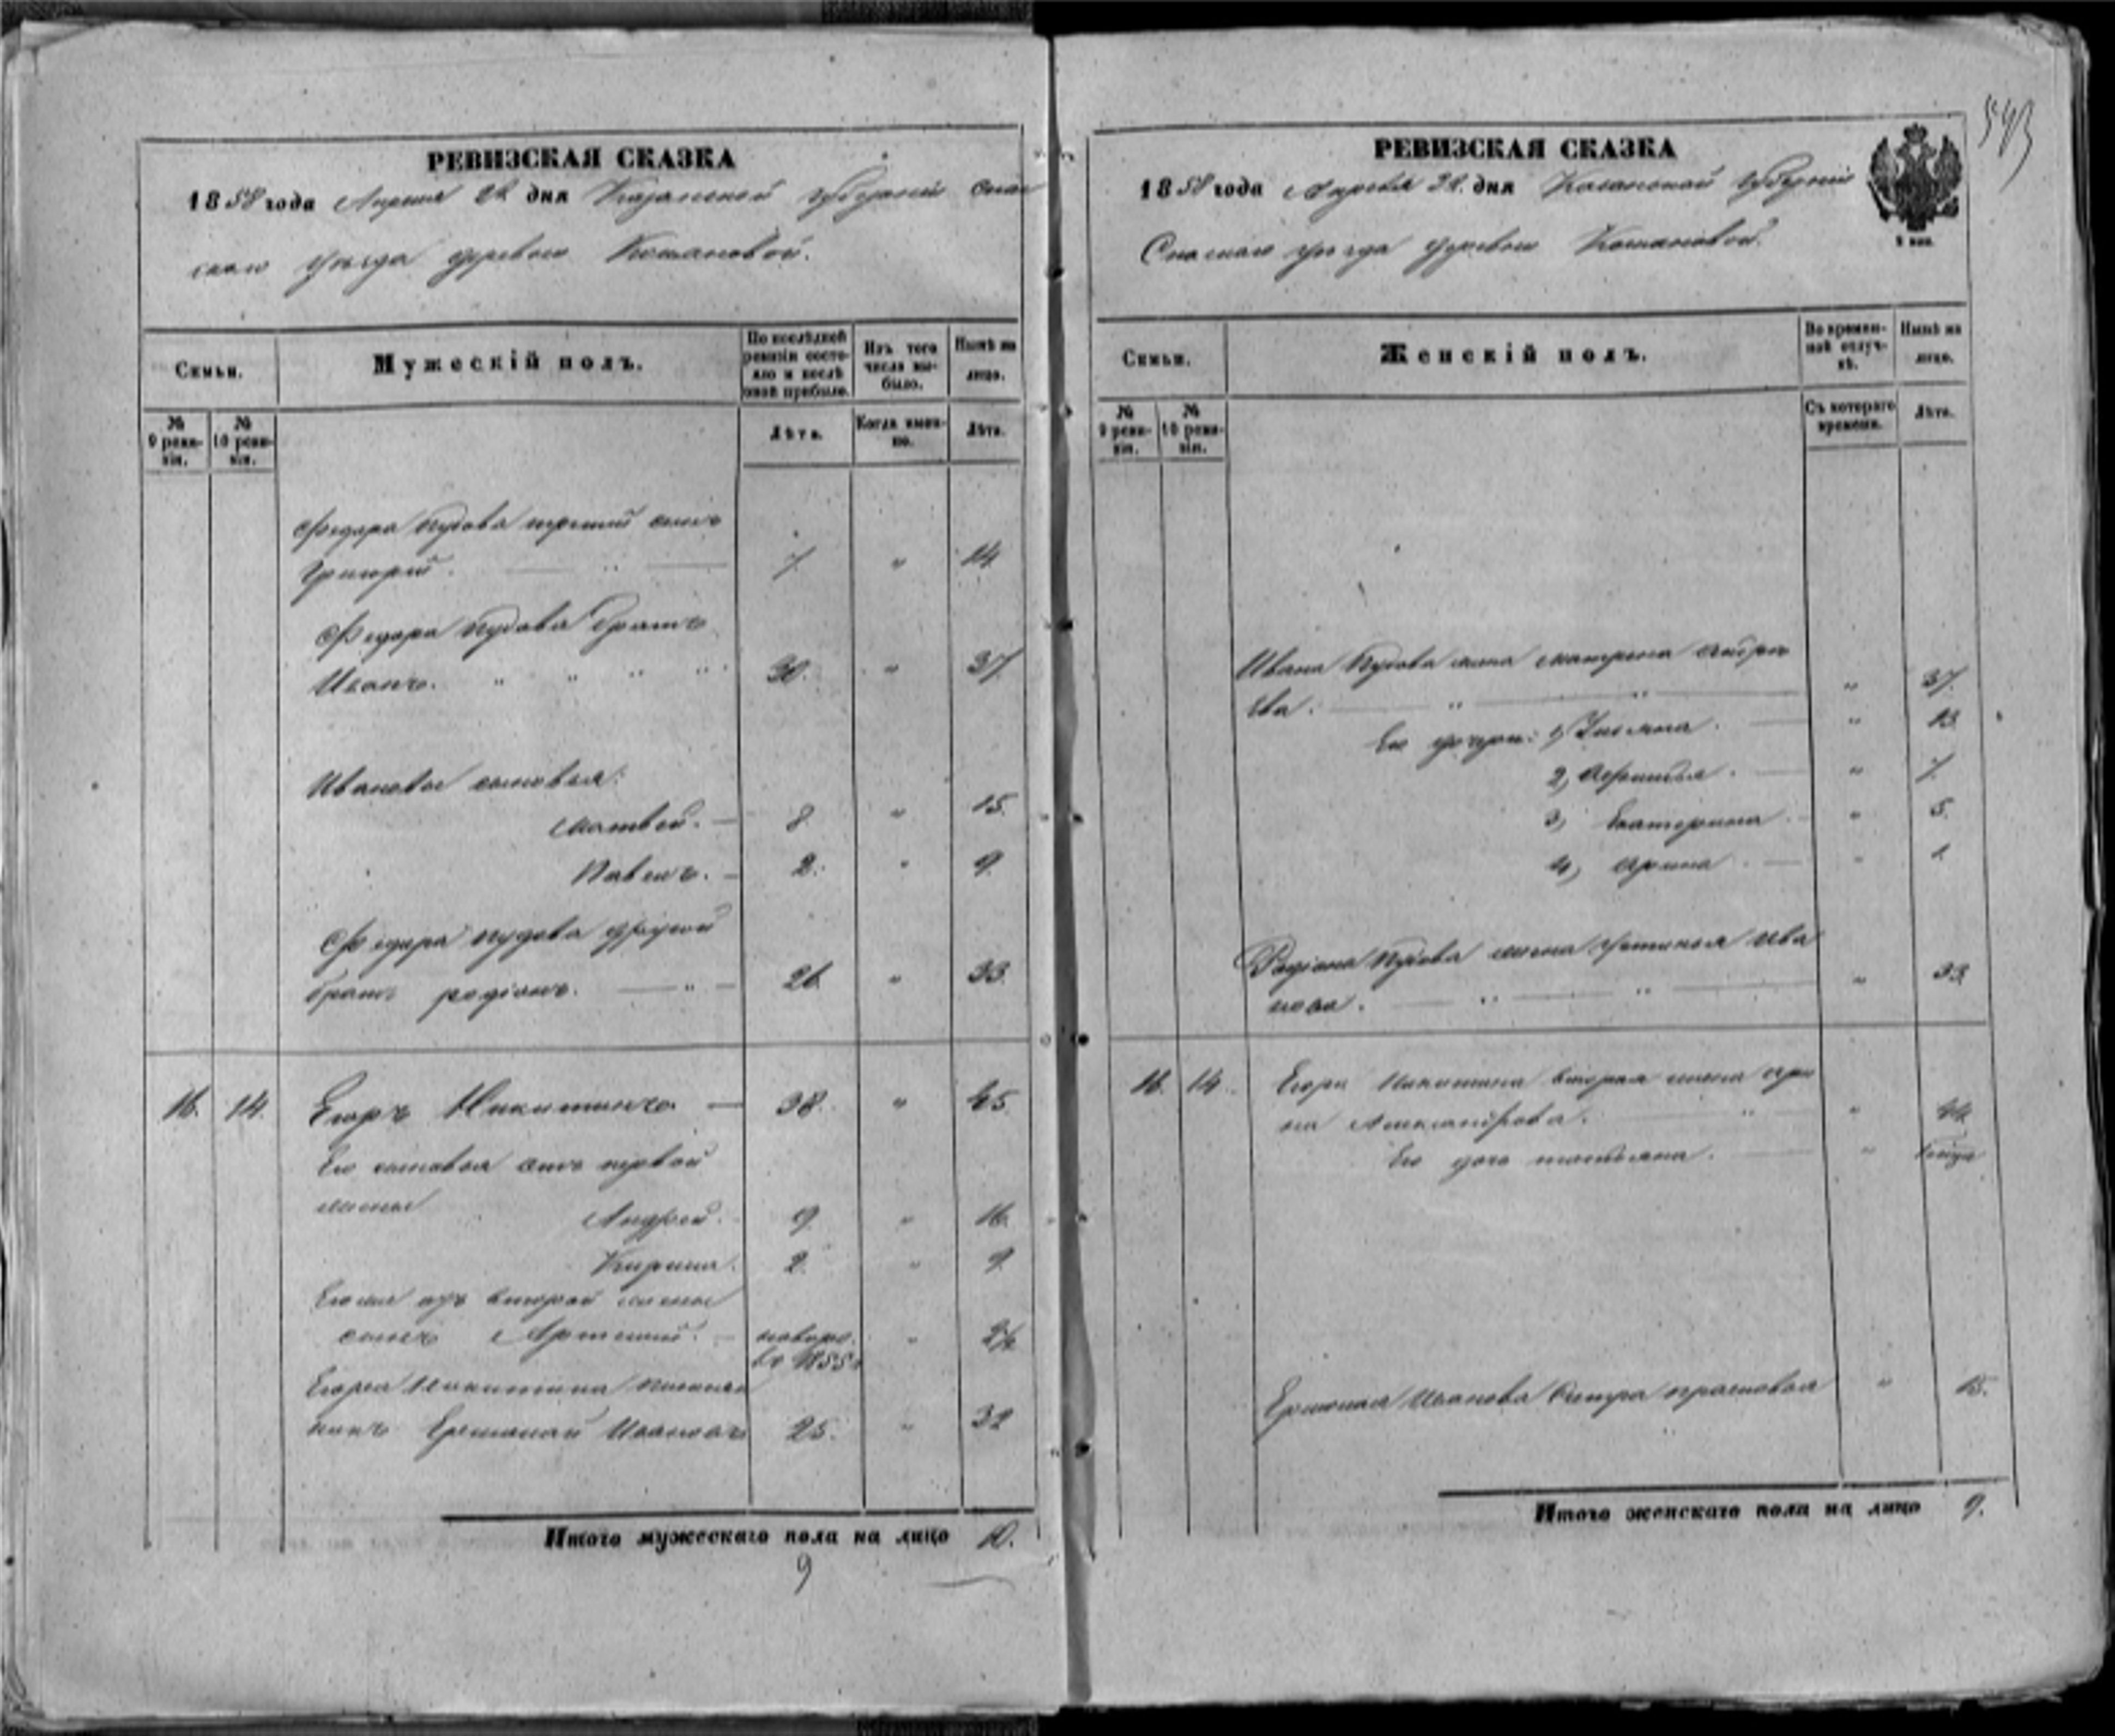 РЕВИЗСКАЯ СКАЗКА
1858 года Апреля дня Казанской губерніи Спас
скаго уезда деревни Кожановой.
Семьи.
Мужескій полъ.
По послѣдней ревизіи состояло и послѣ оной прибыло.
Изъ того числа выбыло.
Нынѣ на лицо.
№ 9 ревизіи.
№ 10 ревизіи.
Лѣта.
Когда именно.
Лѣта.
Федора Пудова третий сынъ
Григорій. " 7 " 14
Федора Пудова братъ
Иванъ. " " " " 30. " 37
Ивановы сыновья:
Матвей. 8 " 15.
Павелъ. 2. " 9
Федора Пудова другой
братъ родіонъ. " 26 " 33.
16. 14. Егоръ Никитинъ 38. " 45
Его сыновья отъ первой
жены
Андрей. 9. " 16.
Кирила. 2. " 9.
Егора отъ второй жены
сынъ Артемий. "
въ 1855
Егора Никитина племян
никъ Ермолай Ивановъ 25. " 32
Итого мужескаго пола на лицо 10.
9
543
РЕВИЗСКАЯ СКАЗКА
1858 года Апреля дня Казанской губерніи
Спаскаго уезда деревни Кожановой.
Семьи.
Женскій полъ.
Во временной отлучкѣ.
Нынѣ на лицо.
№ 9 ревизіи.
№ 10 ревизіи.
Съ котораго времени.
Лѣта.
Ивана Пудова жена Матрена Андре
ева. " " " 37.
Его дочери: 1, " 13
2, " 7
3, Екатерина " 5.
4, Арина " 1
Родіона Пудова жена Устинья Ива
нова. " " " 33
16. 14. Егора Никитина вторая жена Ари
на Александрова. " "
Его дочь Татьяна. "
Ермолая Иванова сестра Прасковья " 15.
Итого женскаго пола на лицо 9.